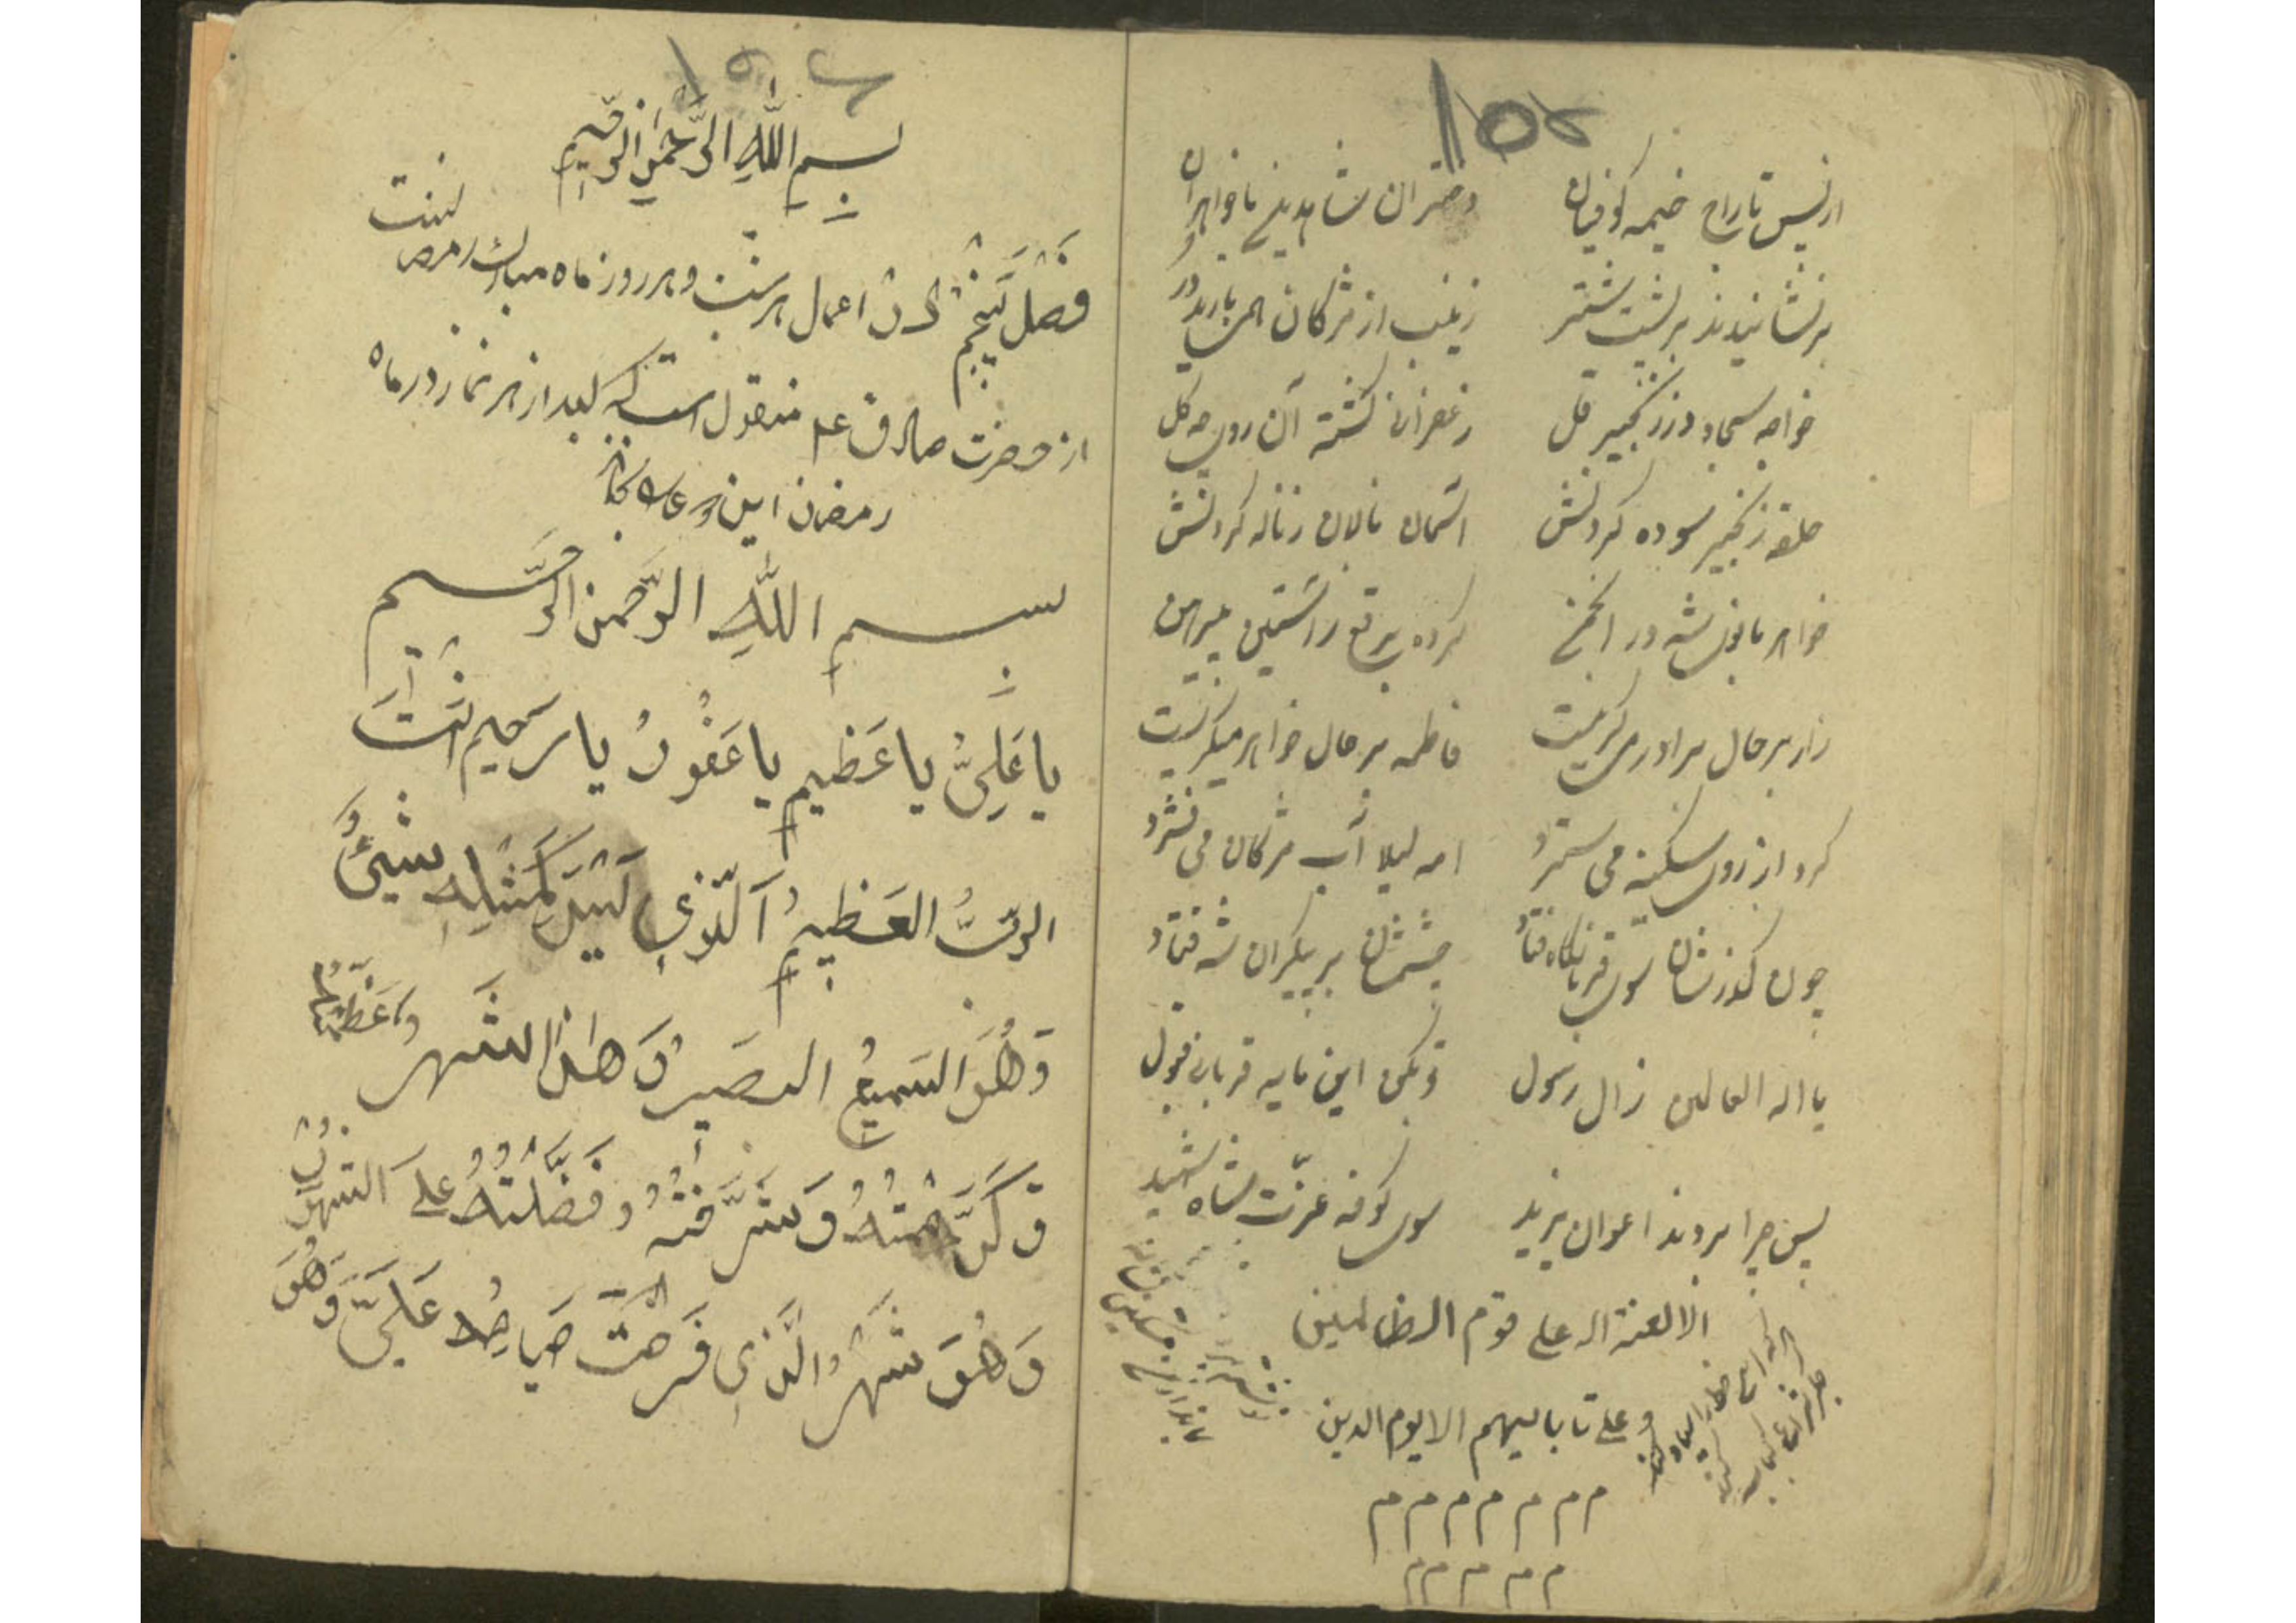 ۱۵۵
از پس تاراج خیمه کوفیان دختران شاه دین با خواهران
برنشانیدند بر پشت شتر زینب از مژگان همی بارید در
خواجه سجاد در زنجیر و غل زعفرانی گشته آن روی چه گل
حلقه زنجیر سوده گردنش آسمان نالان ز ناله کردنش
خواهر بانوی شه در انجمن کرده برقع ز آستین پیرهن
زار بر حال برادر می گریست فاطمه بر حال خواهر میگریست
گرد از روی سکینه می سترد ام لیلا آب مژگان می فشرد
چون گذرشان سوی قربانگاه فتاد چشمشان بر پیکران شه فتاد
یا اله العالمین ز آل رسول تو بکن این مایه قربانی قبول
پس چرا بردند اعوان یزید سوی کوفه عزت شاه شهید
الا لعنة اله علی قوم الظالمین
و علی تابالیهم الا یوم الدین
م م م م م م م
م م م م م
۱۵۶
بِسمِ اللَّهِ الرَّحمٰنِ الرَّحیمِ
فصل پنجم در اعمال هر شب و هر روز ماه مبارک رمضان
از حضرت صادق ع م منقول است که بعد از هر نماز در ماه
رمضان این دعا بخواند
بسم اللَّهِ الرَّحمن الرَّحیم
یا عَلِیُّ یا عَظیم یا غَفُورُ یا رَحیم اَنتَ
الربُّ العَظیمُ اَلَّذی لَیْسَ کَمِثْلِهِ شَیْئٌ
وَهُوَ السَمیعُ البصَیرُ وَ هذا الشَهر وعَظَّمْتَهُ
وَ کَرَّمْتَهُ وَ شَرَّفتَهُ وَ فَضَّلْتَهُ عَلی الشُهُورْ
وَ هُوَ شَهْرُ الَّذی فَرَضْتَ صیامِهُ عَلَیَّ وَ هُوَ